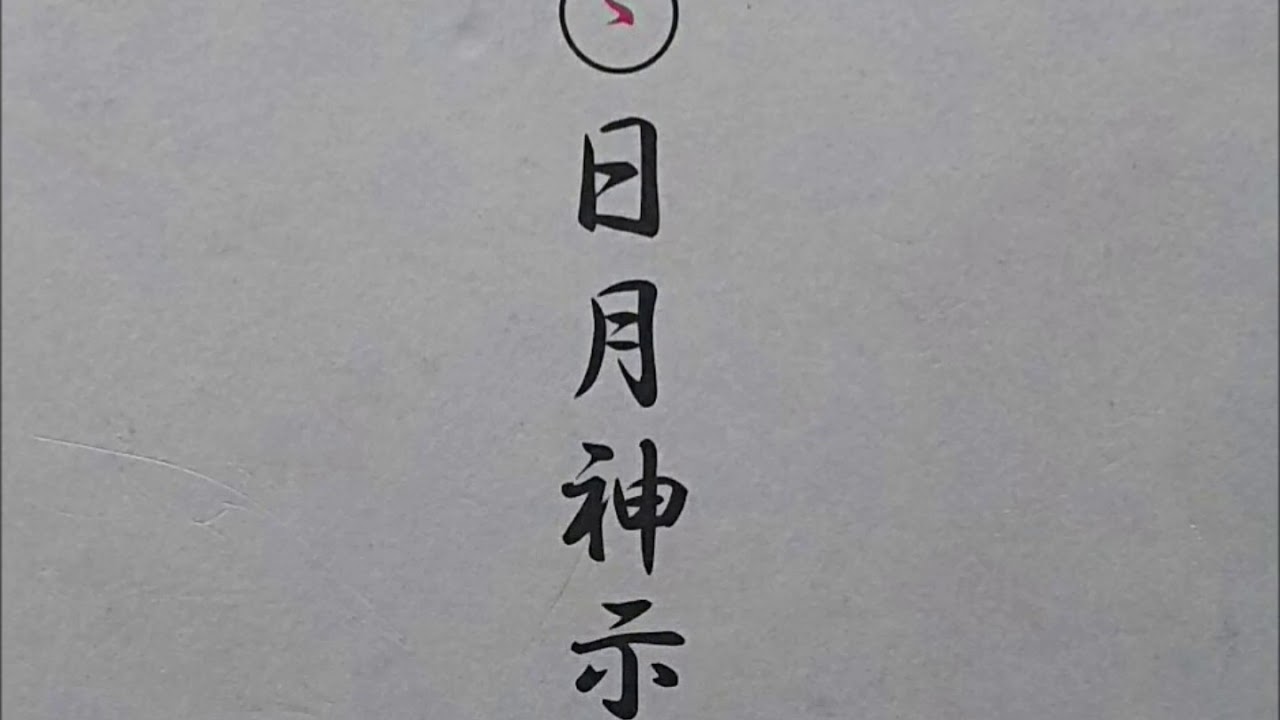 日月神示